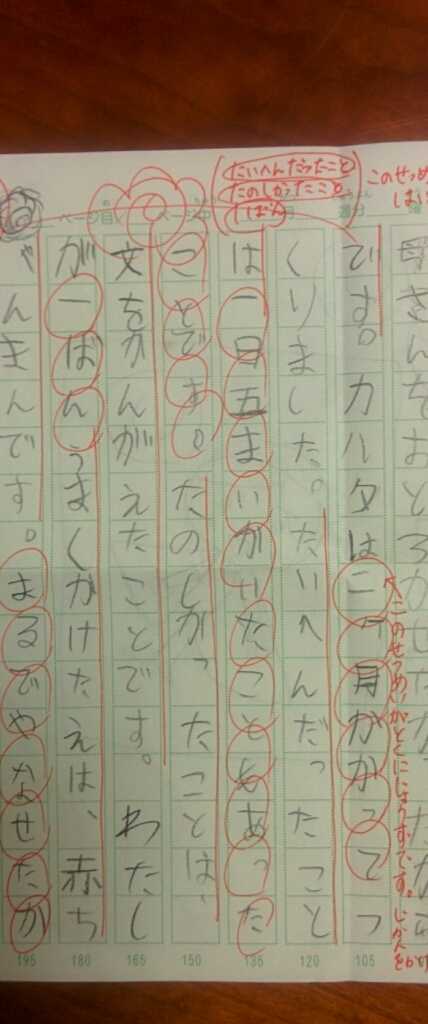 このせつめ
たいへんだったこと
たのしかったこと。
ページ中
ページ目
このせつめいがとくにじょうずです。じかんをかけ
です。カハタは二ヶ月かかってつ
くりました。たいへんだったこと
は一日五まいかいたこともあった
ことです。たのしかったことは、
文をかんがえたことです。わたし
が一ばんうまくかけたえは、赤ち
ゃんきんです。まるでやなせたか
195 180 165 150 135 120 105